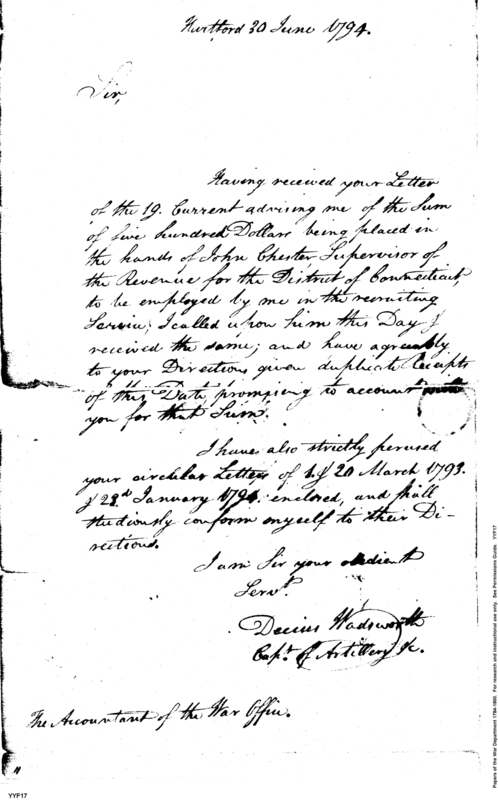 Hartford 30 June 1794.
Sir,
Having received your Letter
of the 19. Current advising me of the Sum
of five hundred Dollars being placed in
the hands of John Chester Supervisor of
the Revenue for the District of Connecticut,
to be employed by me in the recruiting
Service; I called upon him this Day &
received the same; and have agreeably
to your Directions given duplicate Receipts
of this Date, promising to account with
you for that Sum.
I have also strictly perused
your circular Letters of 1. & 20 March 1793.
& 23d January 1794. enclosed, and shall
studiously conform myself to their Di-
rections.
I am Sir your obedient
Servt.
Decius Wadsworth
Capt. of Artillery &c.
The Accountant of the War Office.
YYF17
Papers of the War Department 1784-1800. For research and instructional use only. See Permissions Guide. YYF17